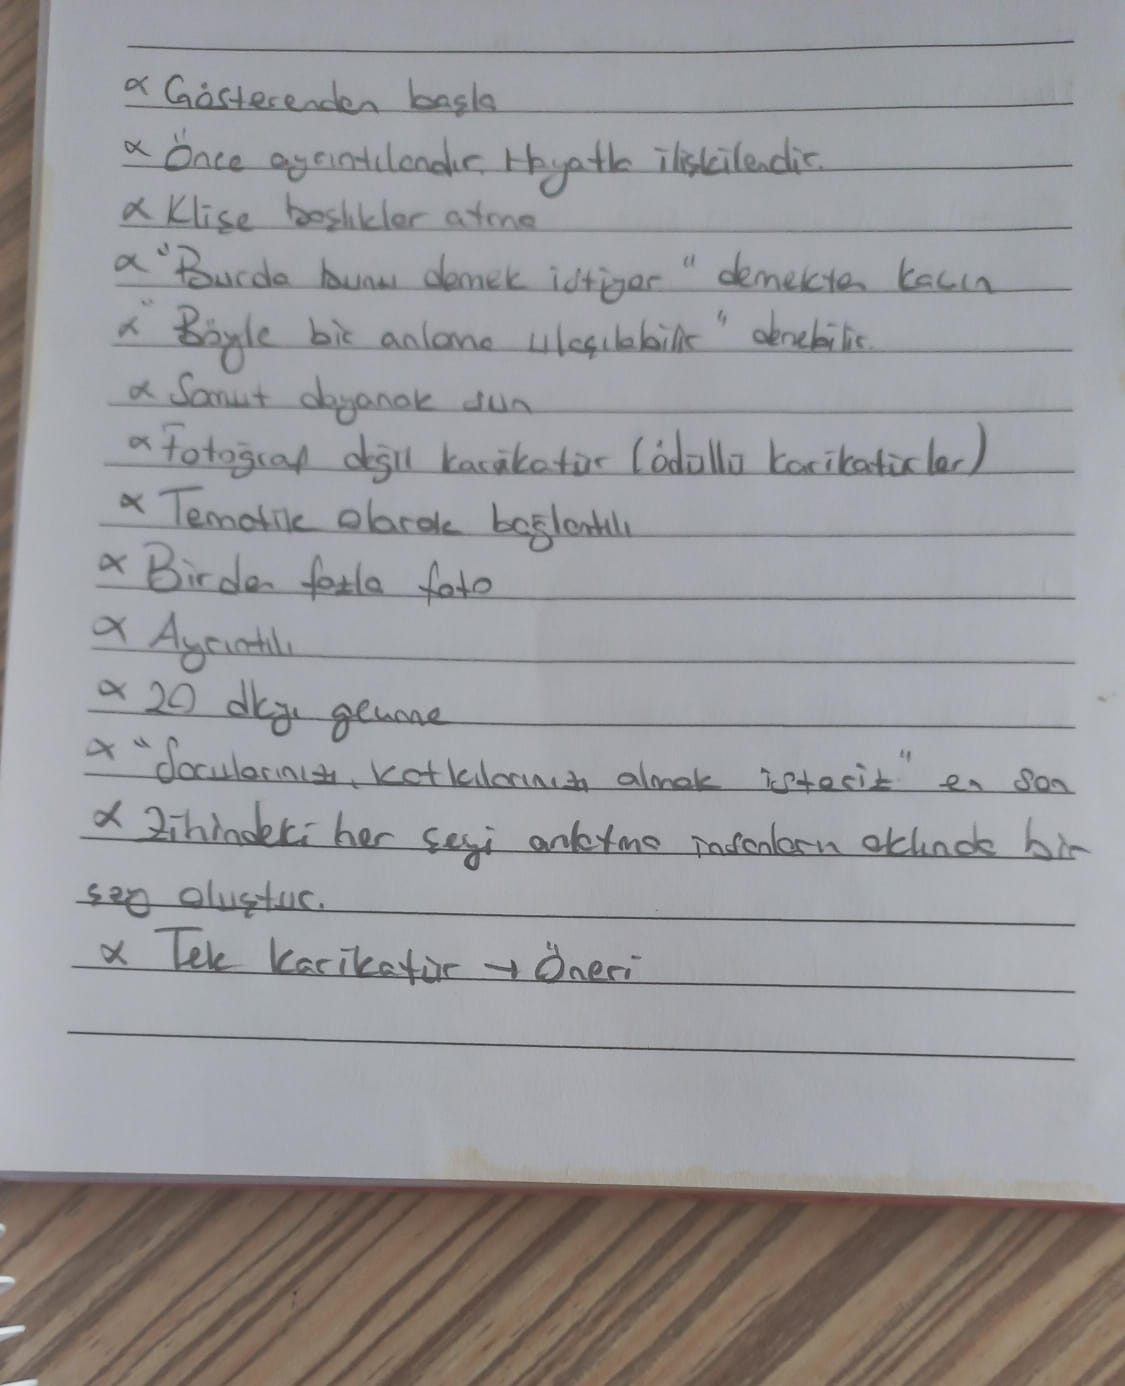 ∝ Gösterenden başla
∝ Önce ayrıntılandır. Hayatla ilişkilendir.
∝ Klişe başlıklar atma
∝ "Burda bunu demek istiyor" demekten kaçın
∝ "Böyle bir anlama ulaşılabilir" denebilir.
∝ Somut dayanak sun
∝ Fotoğraf değil karikatür (ödüllü karikatürler)
∝ Tematik olarak bağlantılı
∝ Birden fazla foto
∝ Ayrıntılı
∝ 20 dkyı geçme
∝ "Sorularınızı, katkılarınızı almak isteriz" en son
∝ Zihindeki her şeyi anlatma insanların aklında bir
şey oluştur.
∝ Tek karikatür → Öneri